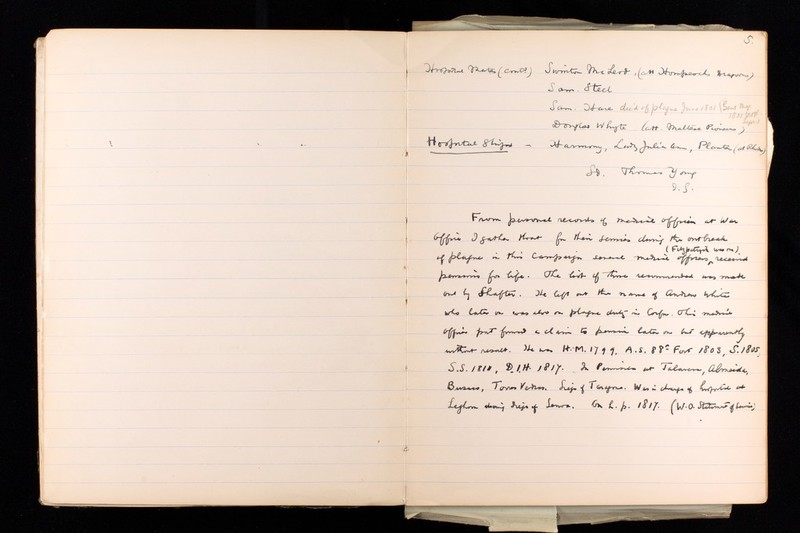 5.
Hospital Mates (contd) Swinton McLeod, (att Hompesch Dragoons)
Sam. Steel
Sam. Hare died of plague June 1801
Douglas Whyte (att. Maltese Pioneers)
Hospital Ships - Harmony, Lady Julia Ann, Planta
Sd. Thomas Young
I.G.
From personal records of medical officers at War
Office I gather that for their services during the outbreak
of plague in this campaign several medical officers (Fitzpatrick was one) received
pensions for life. The list of those recommended was made
out by Shapter. He left out the name of Andrew White
who later on was also on plague duty in Corfu. This medical
officer put forward a claim to pension later on but apparently
without result. He was H.M. 1799, A.S. 88th Foot 1803, S. 1805,
S.S. 1810, D.I.H. 1817. In Peninsula at Talavera, Almeida,
Busaco, Torres Vedras. Siege of Tarragona. Was in charge of hospital at
Leghorn during siege of Genoa. On h.p. 1817. (W.O. Statement of Service)